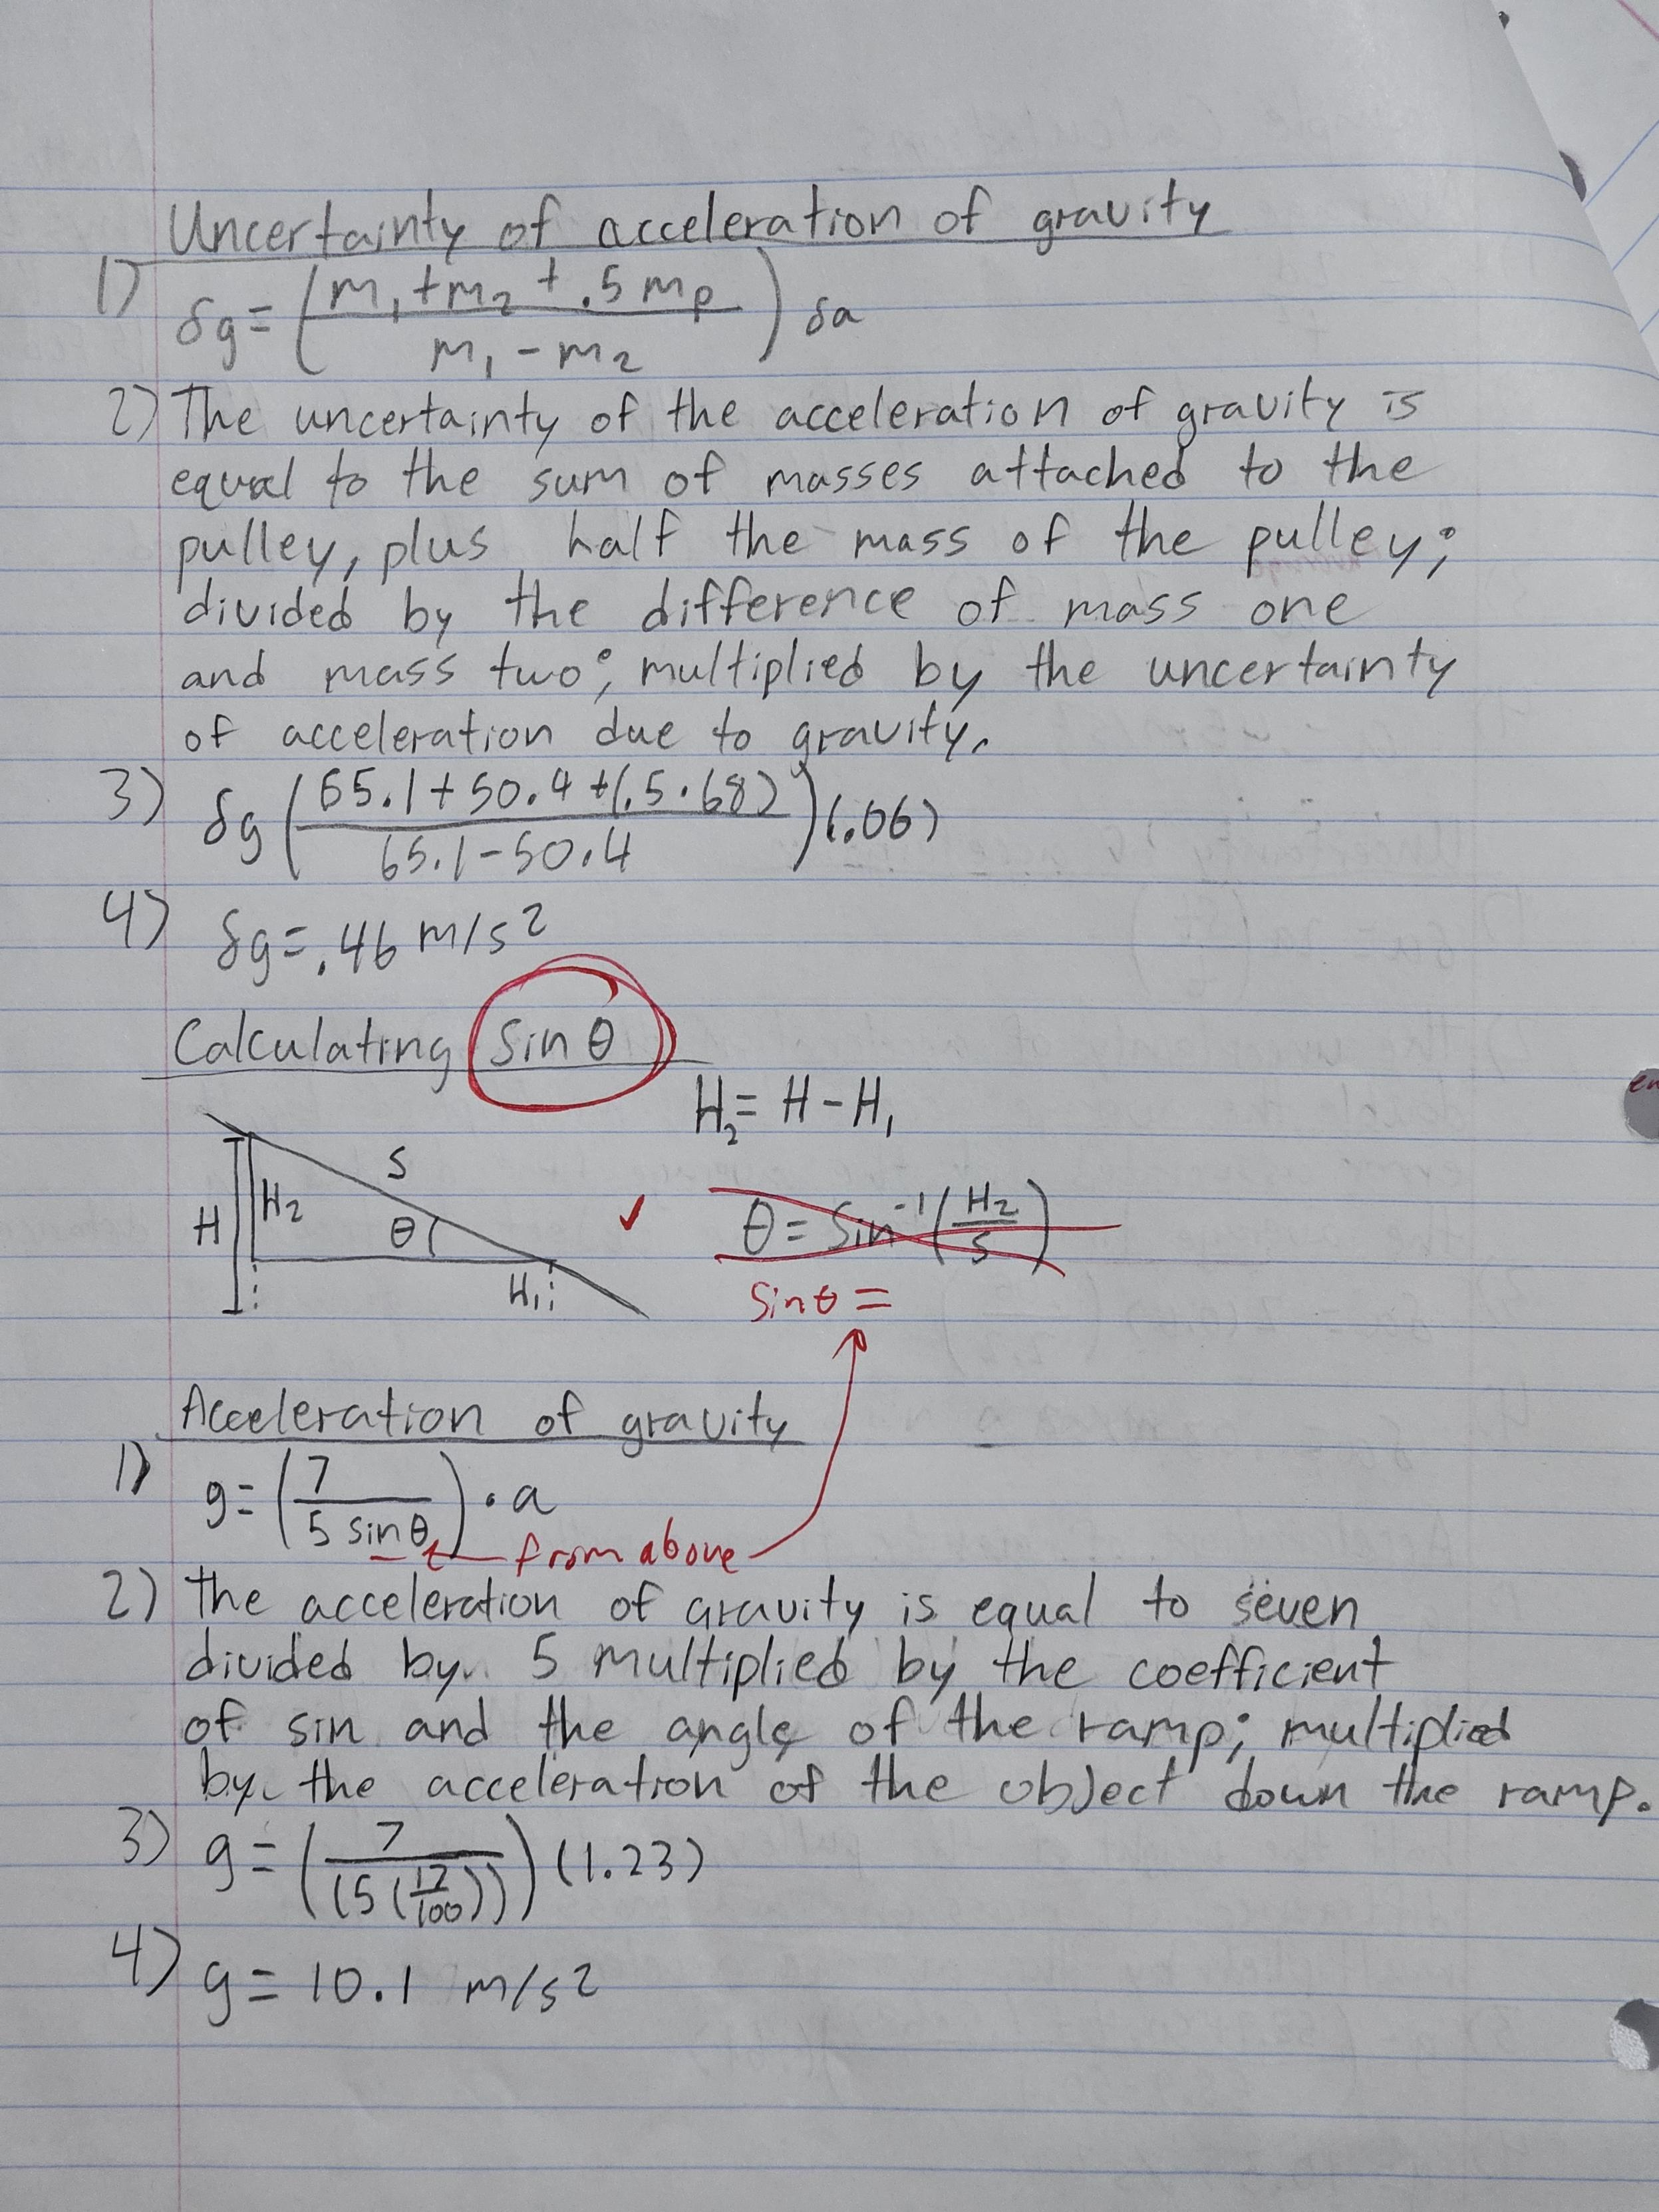 Uncertainty of acceleration of gravity
1) δg = (m₁ + m₂ + .5 mₚ / m₁ - m₂) δa
2) The uncertainty of the acceleration of gravity is
equal to the sum of masses attached to the
pulley, plus half the mass of the pulley;
divided by the difference of mass one
and mass two; multiplied by the uncertainty
of acceleration due to gravity.
3) δg (65.1 + 50.4 + (.5 · 68) / 65.1 - 50.4) (.06)
4) δg = .46 m/s²
Calculating sin θ
H₂ = H - H₁
S
H H₂ θ
H₁
✓ θ = sin⁻¹ (H₂ / S)
sin θ =
Acceleration of gravity
1) g = (7 / 5 sin θ) · a
from above
2) The acceleration of gravity is equal to seven
divided by 5 multiplied by the coefficient
of sin and the angle of the ramp; multiplied
by the acceleration of the object down the ramp.
3) g = (7 / (5 (17/100))) (1.23)
4) g = 10.1 m/s²